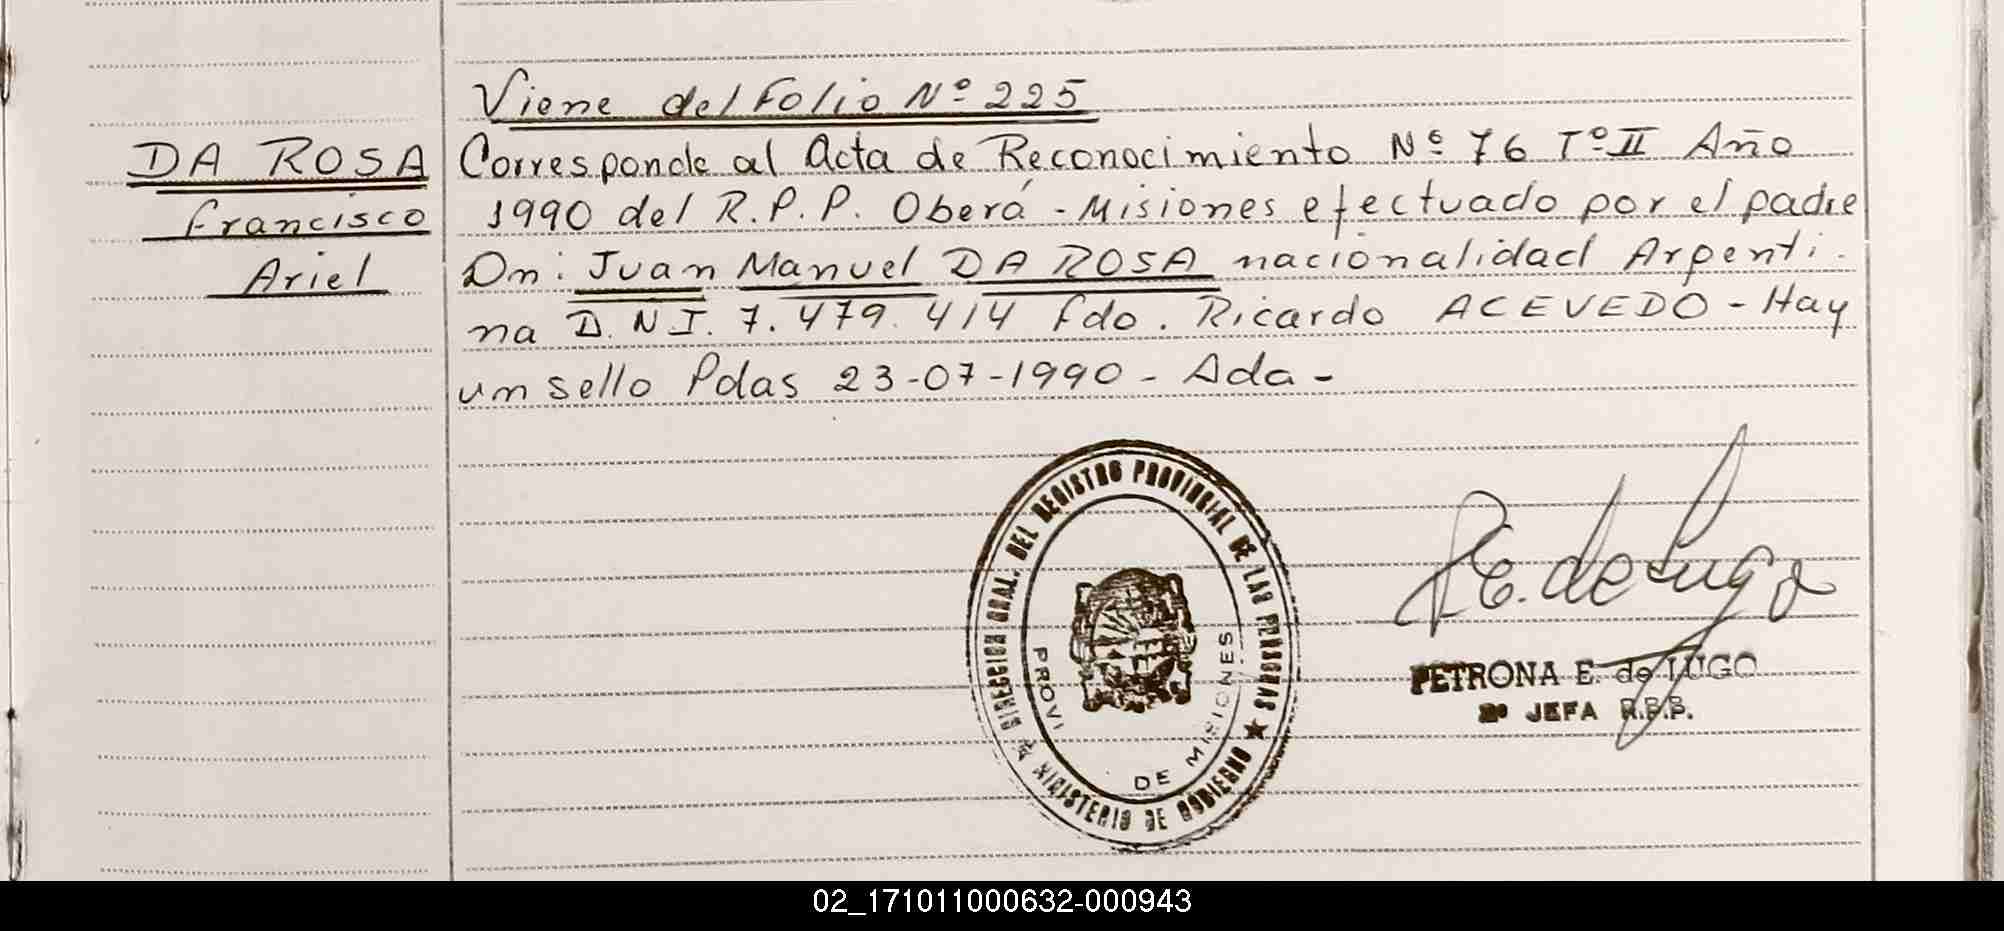 Viene del Folio Nº 225
DA ROSA
Francisco
Ariel
Corresponde al Acta de Reconocimiento Nº 76 Tº II Año
1990 del R.P.P. Oberá - Misiones efectuado por el padre
Dn: Juan Manuel DA ROSA nacionalidad Argenti-
na D.N.I. 7.479.414 fdo. Ricardo ACEVEDO - Hay
un sello Pdas 23-07-1990 - Ada -
DIRECCION GRAL. DEL REGISTRO PROVINCIAL DE LAS PERSONAS
MINISTERIO DE GOBIERNO
PROVI
DE MISIONES
P.E. de Lugo
PETRONA E. de LUGO
JEFA
02_171011000632-000943